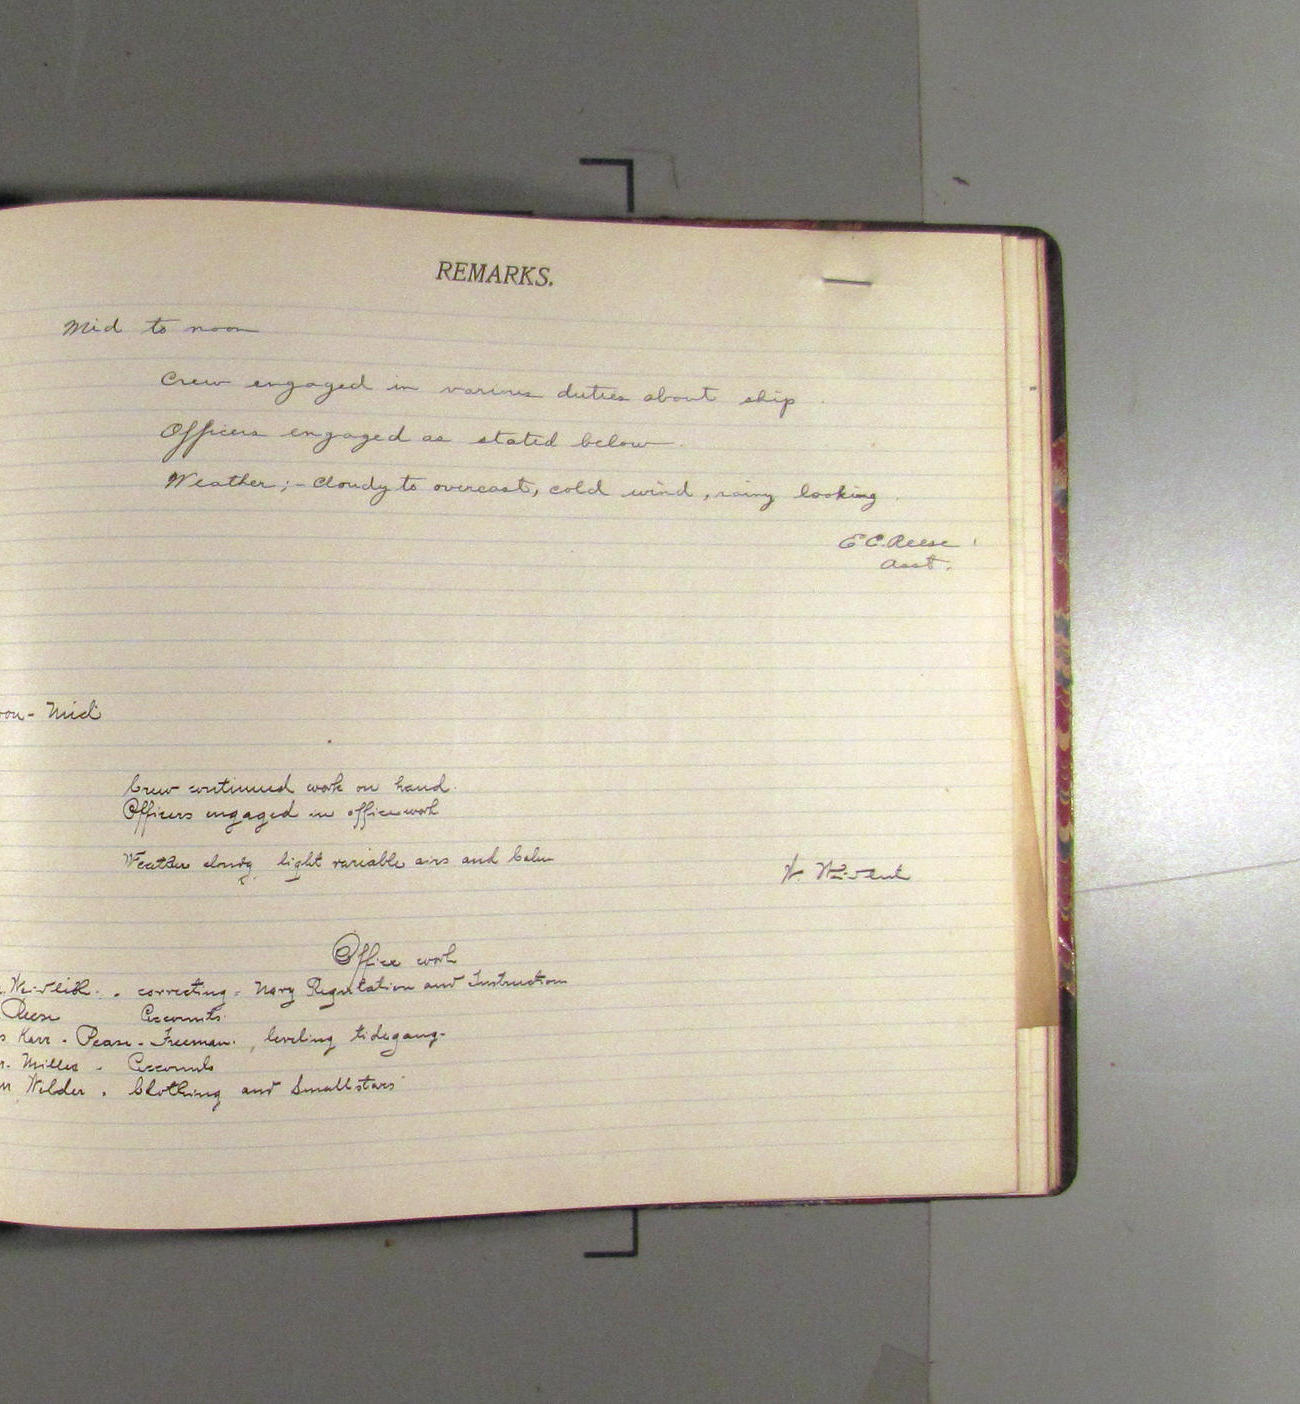 REMARKS.
Mid to noon
Crew engaged in various duties about ship
Officers engaged as stated below.
Weather;- Cloudy to overcast, cold wind, rainy looking.
E C. Reese
Asst.
- Mid
Crew continued work on hand.
Officers engaged in office work
Weather cloudy, light variable airs and Calm
Office work
. correcting - Navy Regulation and Instruction
Reese Accounts
Karr - Pease - Freeman. , leveling tidegang-
Miller - Accounts
Wilder . Clothing and Smallstors